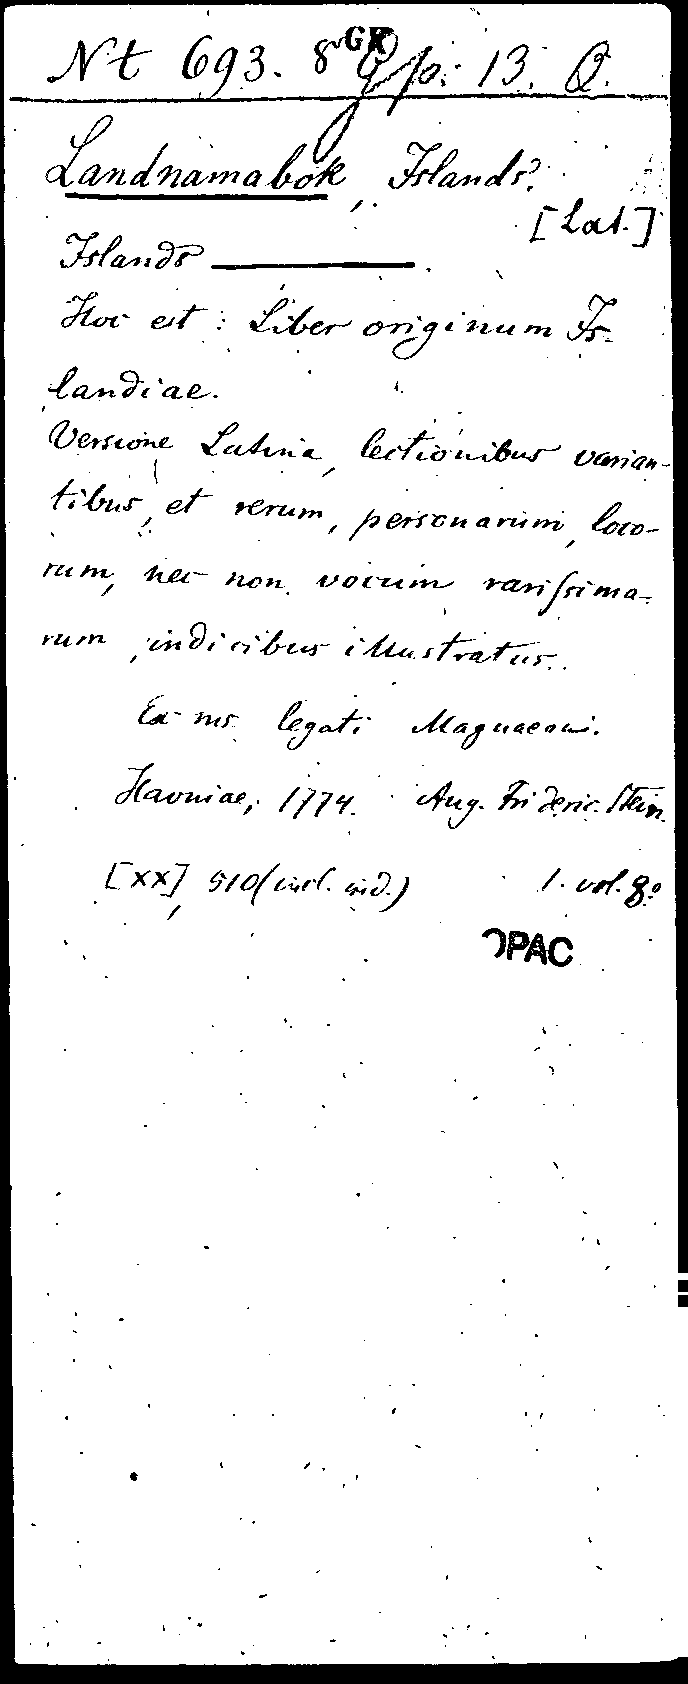 Nt 693. 8º GK p. 13. Q.
Landnamabok, Islands.
[Lat.]
Islands ———.
Hoc est: Liber originum Is-
landiae.
Versione Latina, lectionibus varian-
tibus, et rerum, personarum, loco-
rum, nec non vocum rarissima-
rum, indicibus illustratus.
Ex ms. legati Magnaeani.
Havniae, 1774. Aug. Frideric. Stein.
[XX], 510 (incl. ind.) 1. vol. 8º
OPAC